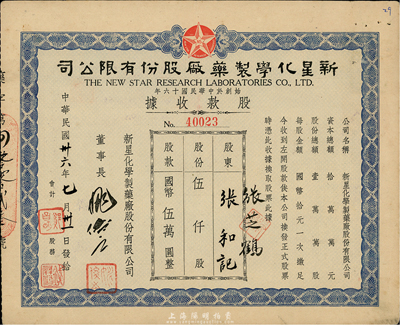 新星化學製藥廠股份有限公司
THE NEW STAR RESEARCH LABORATORIES CO., LTD.
始創於中華民國十六年
股款收據
No. 40023
公司名稱 新星化學製藥廠股份有限公司
資本總額 拾萬萬元
股份總額 壹萬萬股
每股金額 國幣拾元一次繳足
今收到左開股款俟本公司換發正式股票
時憑此收據換取股票此據
股東 張芝鶴 張和記
股份 伍仟股
股款 國幣伍萬圓整
新星化學製藥廠股份有限公司
董事長
中華民國卅六年七月卅一日發給
會計
股務
上海陽明拍賣